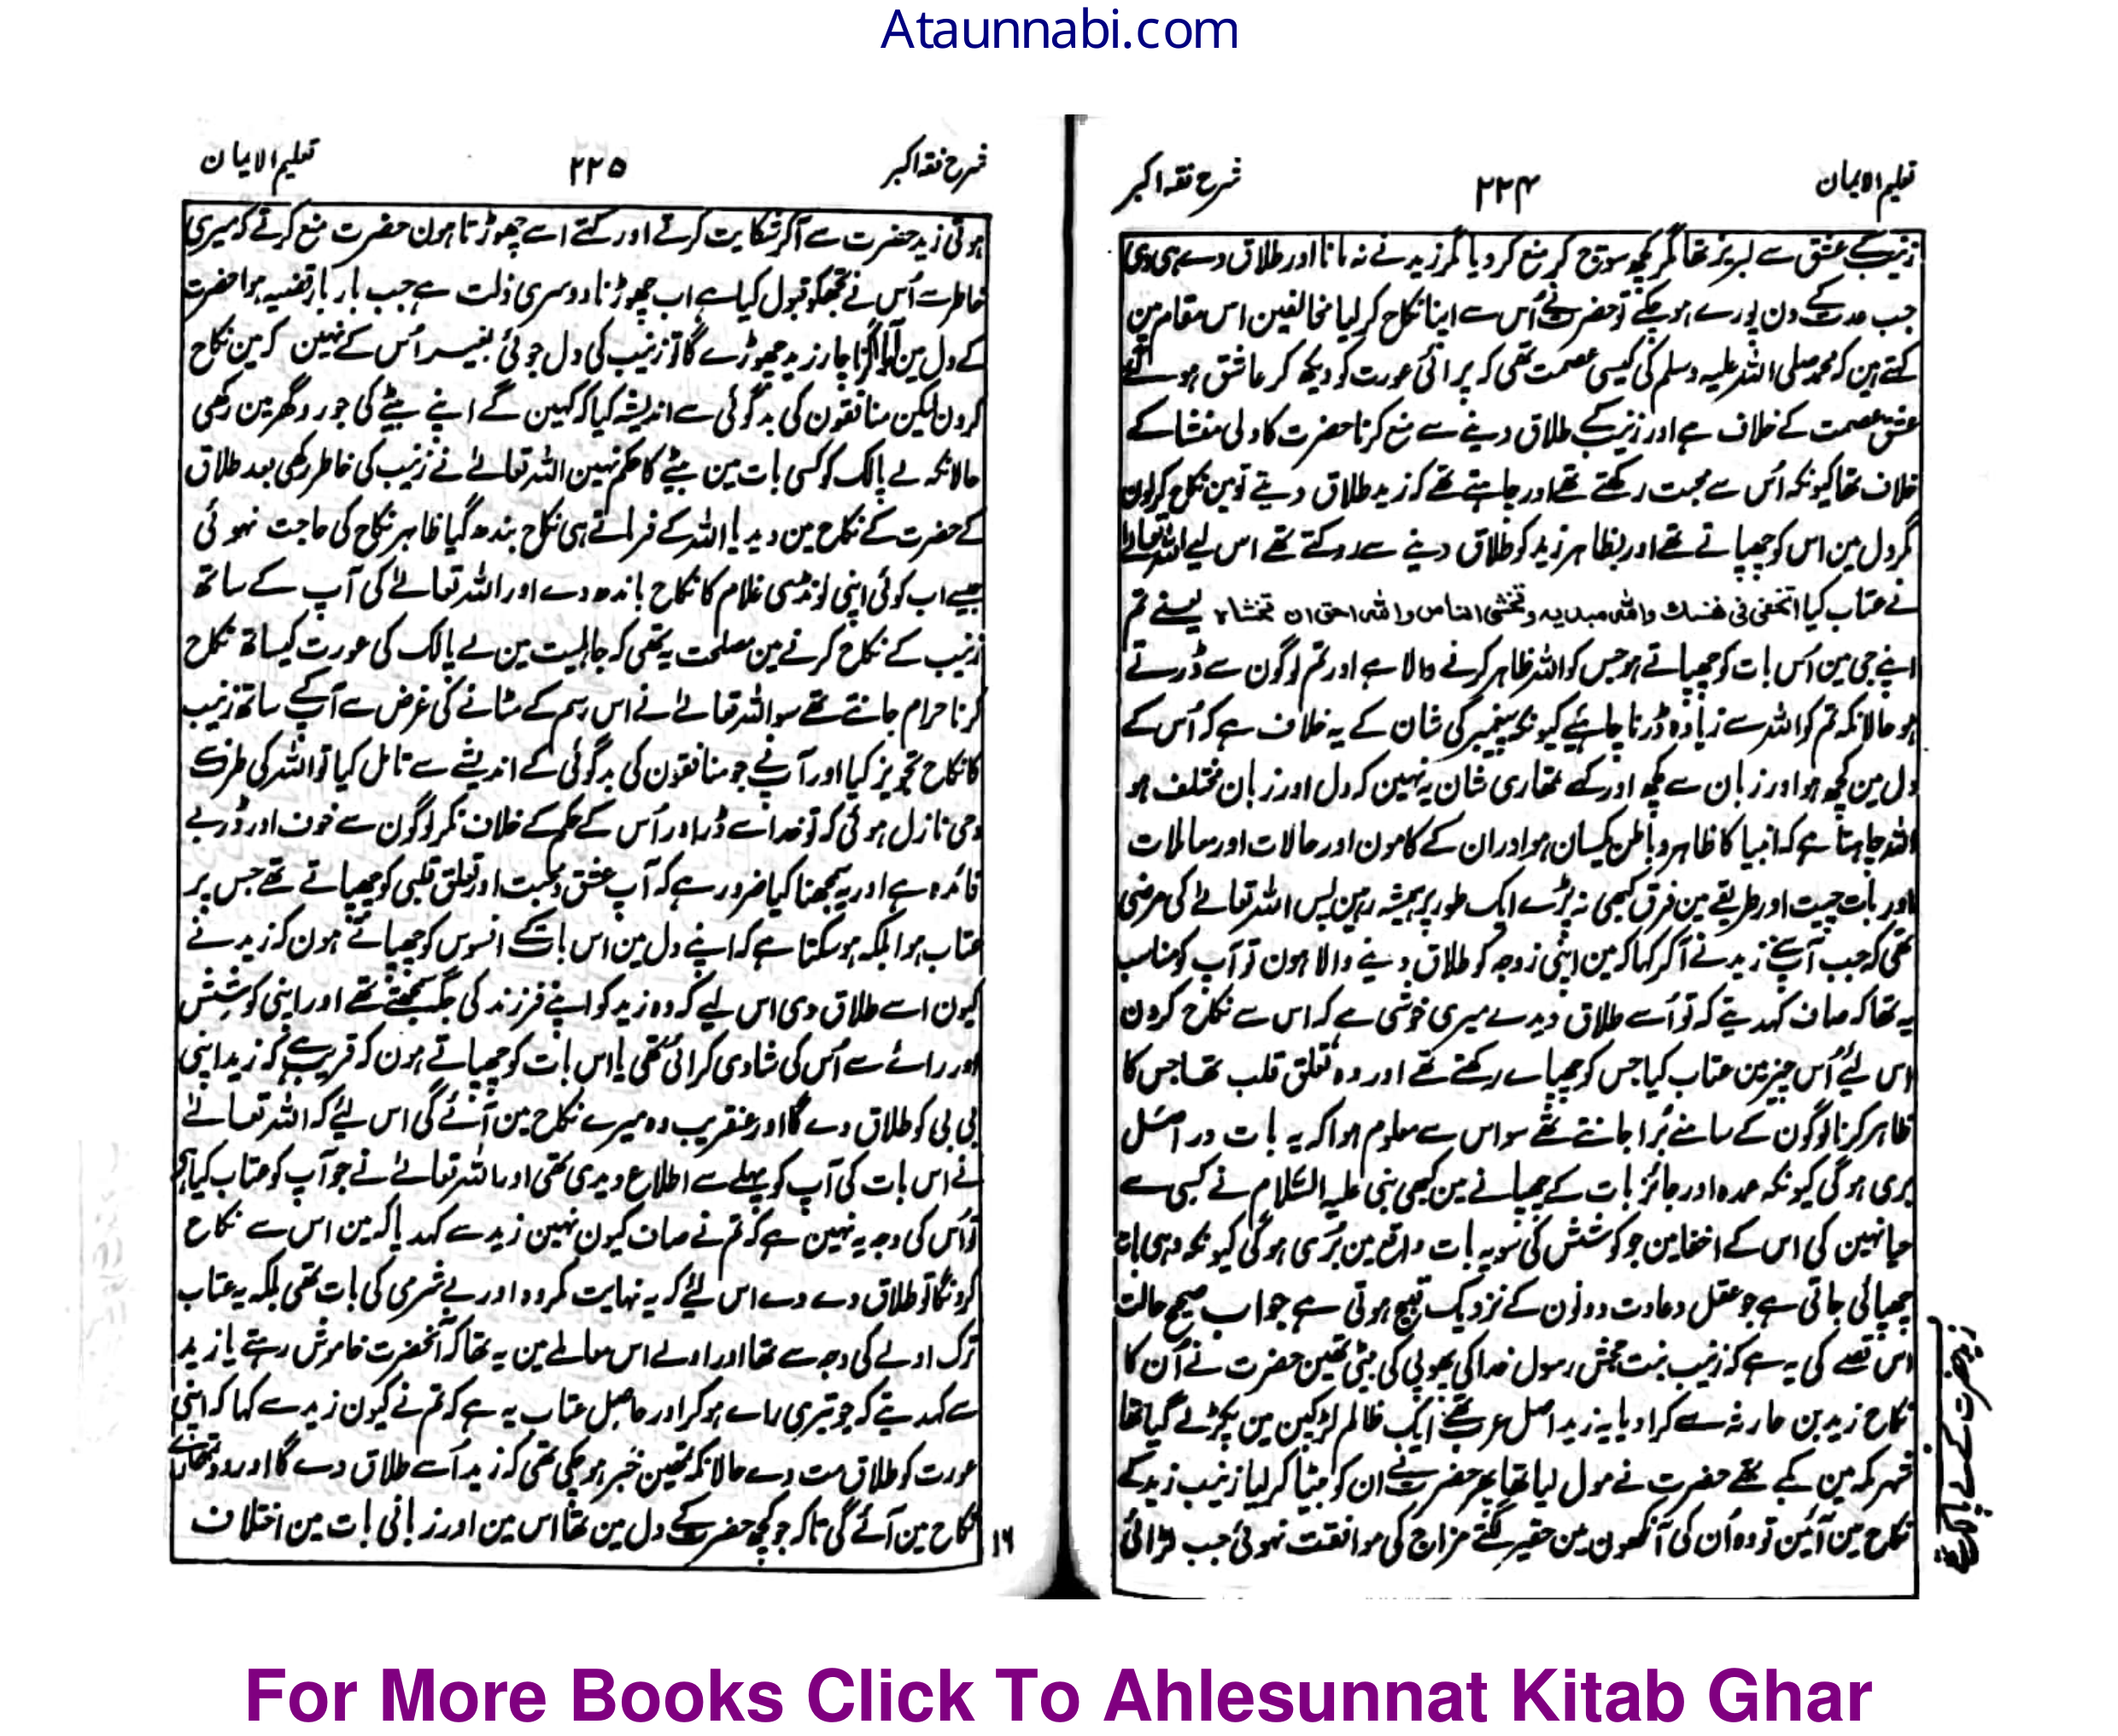 Ataunnabi.com
تعلیم الایمان
۲۲۴
شرح فقہ اکبر
زینب کے عشق سے لبریز تھا مگر کچھ سوچ کر منع کر دیا مگر زید نے نہ مانا اور طلاق دے ہی دی
جب عدت کے دن پورے ہو چکے تو حضرت نے اُس سے اپنا نکاح کر لیا مخالفین اس مقام مین
کہتے ہین کہ محمد صلی اللہ علیہ وسلم کی کیسی عصمت تھی کہ پرائی عورت کو دیکھ کر عاشق ہو گئے
عشق عصمت کے خلاف ہے اور زینب کے طلاق دینے سے منع کرنا حضرت کا دلی منشا کے
خلاف تھا کیونکہ اُس سے محبت رکھتے تھے اور چاہتے تھے کہ زید طلاق دیتے تو مین نکاح کر لون
مگر دل مین اس کو چھپاتے تھے اور بظاہر زید کو طلاق دینے سے روکتے تھے اس لیے اللہ تعالےٰ
نے عتاب کیا اتخفی فی نفسک واللہ مبدیہ وتخشی الناس واللہ احق ان تخشاہ یعنے تم
اپنے جی مین اُس بات کو چھپاتے ہو جس کو اللہ ظاہر کرنے والا ہے اور تم لوگون سے ڈرتے
ہو حالانکہ تم کو اللہ سے زیادہ ڈرنا چاہئیے کیونکہ پیغمبر کی شان کے یہ خلاف ہے کہ اُس کے
دل مین کچھ ہو اور زبان سے کچھ اور کہے تمھاری شان یہ نہین کہ دل اور زبان مختلف ہو
اللہ چاہتا ہے کہ انبیا کا ظاہر و باطن یکسان ہو اور ان کے کامون اور حالات اور معاملات
اور بات چیت اور طریقے مین فرق کبھی نہ پڑے ایک طور پر ہمیشہ رہین پس اللہ تعالےٰ کی مرضی
تھی کہ جب آپ سے زید نے آکر کہا کہ مین اپنی زوجہ کو طلاق دینے والا ہون تو آپ کو مناسب
یہ تھا کہ صاف کہدیتے کہ تو اُسے طلاق دیدے میری خوشی ہے کہ اس سے نکاح کرون
اس لئے اُس چیز مین عتاب کیا جس کو چھپائے رکھتے تھے اور وہ تعلق قلب تھا جس کا
ظاہر کرنا لوگون کے سامنے بُرا جانتے تھے سو اس سے معلوم ہوا کہ یہ بات در اصل
بری ہو گی کیونکہ عمدہ اور جائز بات کے چھپانے مین کبھی نبی علیہ السّلام نے کسی سے
حیا نہین کی اس کے اخفا مین جو کوشش کی سو یہ بات واقع مین بُری ہو گی کیونکہ وہی بات
چھپائی جاتی ہے جو عقل و عادت دونون کے نزدیک قبیح ہوتی ہے جواب صحیح حالت
اس قصے کی یہ ہے کہ زینب بنت جحش رسول خدا کی پھوپی کی بیٹی تھین حضرت نے اُن کا
نکاح زید بن حارثہ سے کرا دیا یہ زید اصل عرب تھے ایک ظالم لڑکپن مین پکڑ لے گیا تھا
شہر مکہ مین بکے تھے حضرت نے مول لیا تھا پھر حضرت نے ان کو بیٹا کر لیا زینب زید کے
نکاح مین آئین تو وہ اُن کی آنکھون مین حقیر لگتے مزاج کی موافقت نہوئی جب لڑائی
شرح فقہ اکبر
۲۲۵
تعلیم الایمان
ہوتی زید حضرت سے آکر شکایت کرتے اور کہتے اسے چھوڑتا ہون حضرت منع کرتے کہ میری
خاطر سے اُس نے تجھکو قبول کیا ہے اب چھوڑنا دوسری ذلت ہے جب بار بار قضیہ ہوا حضرت
کے دل مین آیا اگر ناچار زید چھوڑے گا تو زینب کی دل جوئی بغیر اُس کے نہین کہ مین نکاح
کرون لیکن منافقون کی بدگوئی سے اندیشہ کیا کہ کہین گے اپنے بیٹے کی جورو گھر مین رکھی
حالانکہ لے پالک کو کسی بات مین بیٹے کا حکم نہین اللہ تعالےٰ نے زینب کی خاطر رکھی بعد طلاق
کے حضرت کے نکاح مین دیدیا اللہ کے فرماتے ہی نکاح بندھ گیا ظاہر نکاح کی حاجت نہوئی
جیسے اب کوئی اپنی لونڈی غلام کا نکاح باندھ دے اور اللہ تعالےٰ کی آپ کے ساتھ
زینب کے نکاح کرنے مین مصلحت یہ تھی کہ جاہلیت مین لے پالک کی عورت کیساتھ نکاح
کرنا حرام جانتے تھے سو اللہ تعالےٰ نے اس رسم کے مٹانے کی غرض سے آپ کے ساتھ زینب
کا نکاح تجویز کیا اور آپ نے جو منافقون کی بدگوئی کے اندیشے سے تامل کیا تو اللہ کی طرف سے
وحی نازل ہوئی کہ تو خدا سے ڈر اور اُس کے حکم کے خلاف نکر لوگون سے خوف اور ڈر بے
فائدہ ہے اور یہ سمجھنا کیا ضرور ہے کہ آپ عشق و محبت اور تعلق قلبی کو چھپاتے تھے جس پر
عتاب ہوا بلکہ ہو سکتا ہے کہ اپنے دل مین اس بات کے افسوس کو چھپاتے ہون کہ زید نے
کیون اسے طلاق دی اس لیے کہ وہ زید کو اپنے فرزند کی جگہ سمجھتے تھے اور اپنی کوشش
اور رائے سے اُس کی شادی کرائی تھی یا اس بات کو چھپاتے ہون کہ قریب ہے کہ زید اپنی
بی بی کو طلاق دے گا اور عنقریب وہ میرے نکاح مین آئے گی اس لیئے کہ اللہ تعالےٰ
نے اس بات کی آپ کو پہلے سے اطلاع دیدی تھی اور اللہ تعالےٰ نے جو آپ کو عتاب کیا ہے
تو اُس کی وجہ یہ نہین ہے کہ تم نے صاف کیون نہین زید سے کہدیا کہ مین اس سے نکاح
کرونگا تو طلاق دے دے اس لیئے کہ یہ نہایت مکروہ اور بے شرمی کی بات تھی بلکہ یہ عتاب
ترک اولے کی وجہ سے تھا اور اولے اس معاملے مین یہ تھا کہ آنحضرت خاموش رہتے یا زید
سے کہدیتے کہ جو تیری رائے ہو کر اور حاصل عتاب یہ ہے کہ تم نے کیون زید سے کہا کہ اپنی
عورت کو طلاق مت دے حالانکہ تمھین خبر ہو چکی تھی کہ زید اُسے طلاق دے گا اور وہ تمھارے
نکاح مین آئے گی تاکہ جو کچھ حضرت کے دل مین تھا اس مین اور زبانی بات مین اختلاف
For More Books Click To Ahlesunnat Kitab Ghar